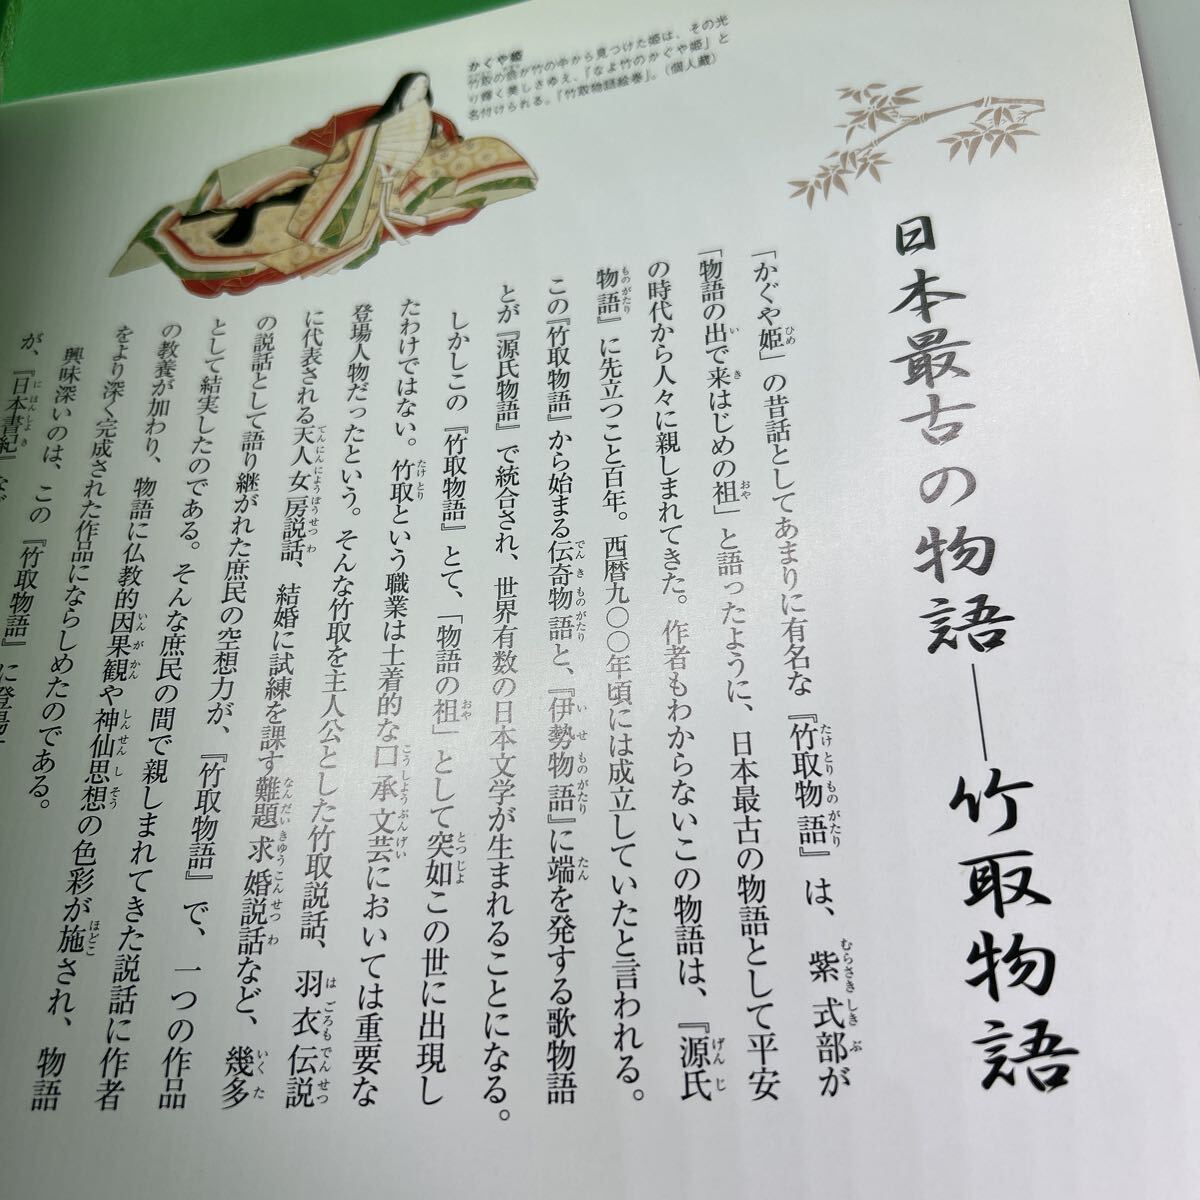 日本最古の物語―竹取物語
「かぐや姫」の昔話としてあまりに有名な『竹取物語』は、紫式部が
「物語の出で来はじめの祖」と語ったように、日本最古の物語として平安
の時代から人々に親しまれてきた。作者もわからないこの物語は、『源氏
物語』に先立つこと百年。西暦九〇〇年頃には成立していたと言われる。
この『竹取物語』から始まる伝奇物語と、『伊勢物語』に端を発する歌物語
とが『源氏物語』で統合され、世界有数の日本文学が生まれることになる。
しかしこの『竹取物語』とて、「物語の祖」として突如この世に出現し
たわけではない。竹取という職業は土着的な口承文芸においては重要な
登場人物だったという。そんな竹取を主人公とした竹取説話、羽衣伝説
に代表される天人女房説話、結婚に試練を課す難題求婚説話など、幾多
の説話として語り継がれた庶民の空想力が、『竹取物語』で、一つの作品
として結実したのである。そんな庶民の間で親しまれてきた説話に作者
の教養が加わり、物語に仏教的因果観や神仙思想の色彩が施され、物語
をより深く完成された作品にならしめたのである。
興味深いのは、この『竹取物語』に登場
が、『日本書紀』など
かぐや姫
竹取の翁が竹の中から見つけた姫は、その光
り輝く美しさゆえ、「なよ竹のかぐや姫」と
名付けられる。『竹取物語絵巻』。（個人蔵）